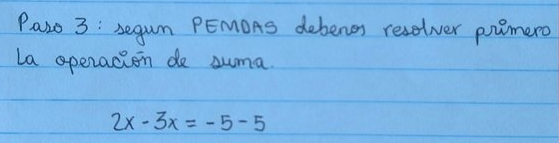 Paso 3: segun PEMDAS debenos resolver primero
la operación de suma.
2x - 3x = -5 - 5